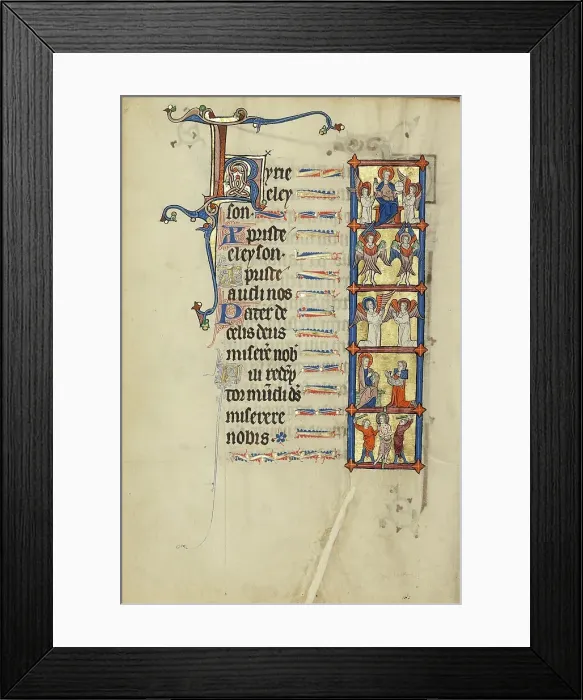 Kyrie
eley
son.
Xpriste
eleyson.
Xpriste
audi nos
Pater de
celis deus
miserē nob̄
Fili redēp
tor mūdi ds̄
miserere
nobis.